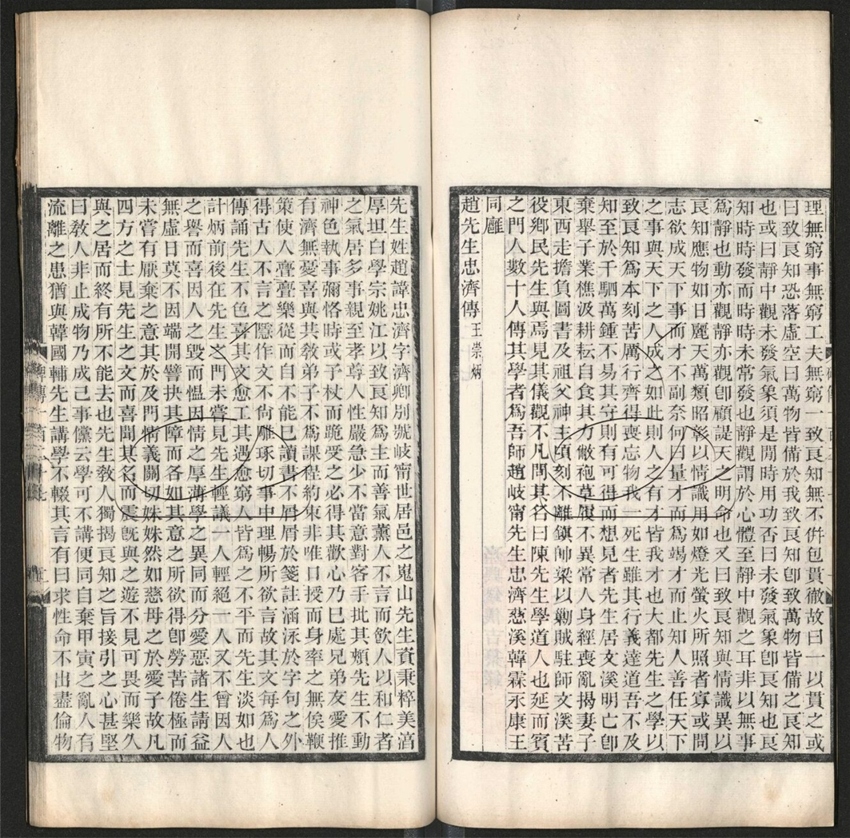 理無窮事無窮工夫無窮一致良知無不併包貫徹故曰一以貫之或
曰致良知恐落虛空曰萬物皆備於我致良知卽致萬物皆備之良知
也或曰靜中觀未發氣象須是閒時用功否曰未發氣象卽良知也良
知時時發而時時未常發也靜觀謂於心體至靜中觀之耳非以無事
爲靜也動亦觀靜亦觀卽顧諟天之明命也又曰致良知與情識異以
良知應物如日麗天萬類昭彰以情識用如燈光螢火所照者寡或問
志欲成天下事而才不副奈何曰量才而爲竭才而止知人善任天下
之事與天下之人成之如此則人之有才皆我才也大都先生之學以
致良知爲本刻苦厲行齊得喪忘物我一死生雖其行義達道吾不及
知至於千駟萬鍾不易其守則有可得而想見者先生居文溪明亡卽
棄舉子業樵汲耕耘自食其力敝袍草履不異常人身經喪亂揭妻子
東西走擔負圖書及祖父神主頃刻不離鎮帥梁以勦賊駐師文溪苦
役鄉民先生與焉見其儀觀不凡問其名曰陳先生學道人也延而賓
之門人數十人傳其學者爲吾師趙岐甯先生忠濟慈溪韓霖永康王
同廱
趙先生忠濟傳 王崇炳
先生姓趙諱忠濟字濟卿別號岐甯世居邑之嵬山先生資秉粹美渾
厚坦白學宗姚江以致良知爲主而善氣薰人不言而飲人以和仁者
之氣居多事親至孝尊人性嚴急少不當意對客手批其頰先生不動
神色執事彌恪時或予杖而跪受之必得其歡心乃已處兄弟友愛推
有濟無憂喜與共敎弟子不爲課程約束非唯口授而身率之無俟鞭
策使人亹亹樂從而自不能已讀書不屑屑於箋註涵泳於字句之外
得古人不言之隱作文不尚雕琢切事中理暢所欲言故其文每爲人
傳誦先生不色喜其文愈工其遇愈窮人皆爲之不平而先生淡如也
計炳前後在先生之門未嘗見先生輕議一人輕絕一人又不曾因人
之譽而喜因人之毀而慍因情之厚薄學之異同而分愛惡諸生請益
無虛日莫不因端開譬抉其障而各如其意之所欲得卽勞苦倦極而
未嘗有厭棄之意其於及門情義關切姝姝然如慈母之於愛子故凡
四方之士見先生之文而喜聞其名而震旣與之遊不見可畏而樂久
與之居而終有所不能去也先生敎人獨揭良知之旨接引之心甚堅
曰敎人非止成物乃成己事儻云學可不講便同自棄甲寅之亂人有
流離之患猶與韓國輔先生講學不輟其言有曰求性命不出盡倫物